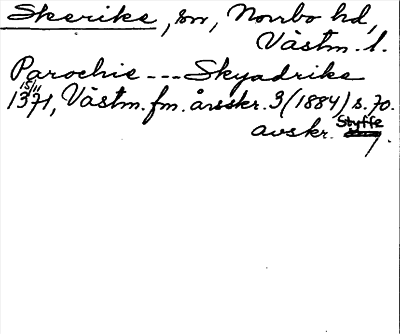 Skerike, sn, Norrbo hd,
Västm. l.
Parochie --- Skyadrike
15/11 1371, Västm. fm. årsskr. 3 (1884) s. 70.
avskr. Styffe